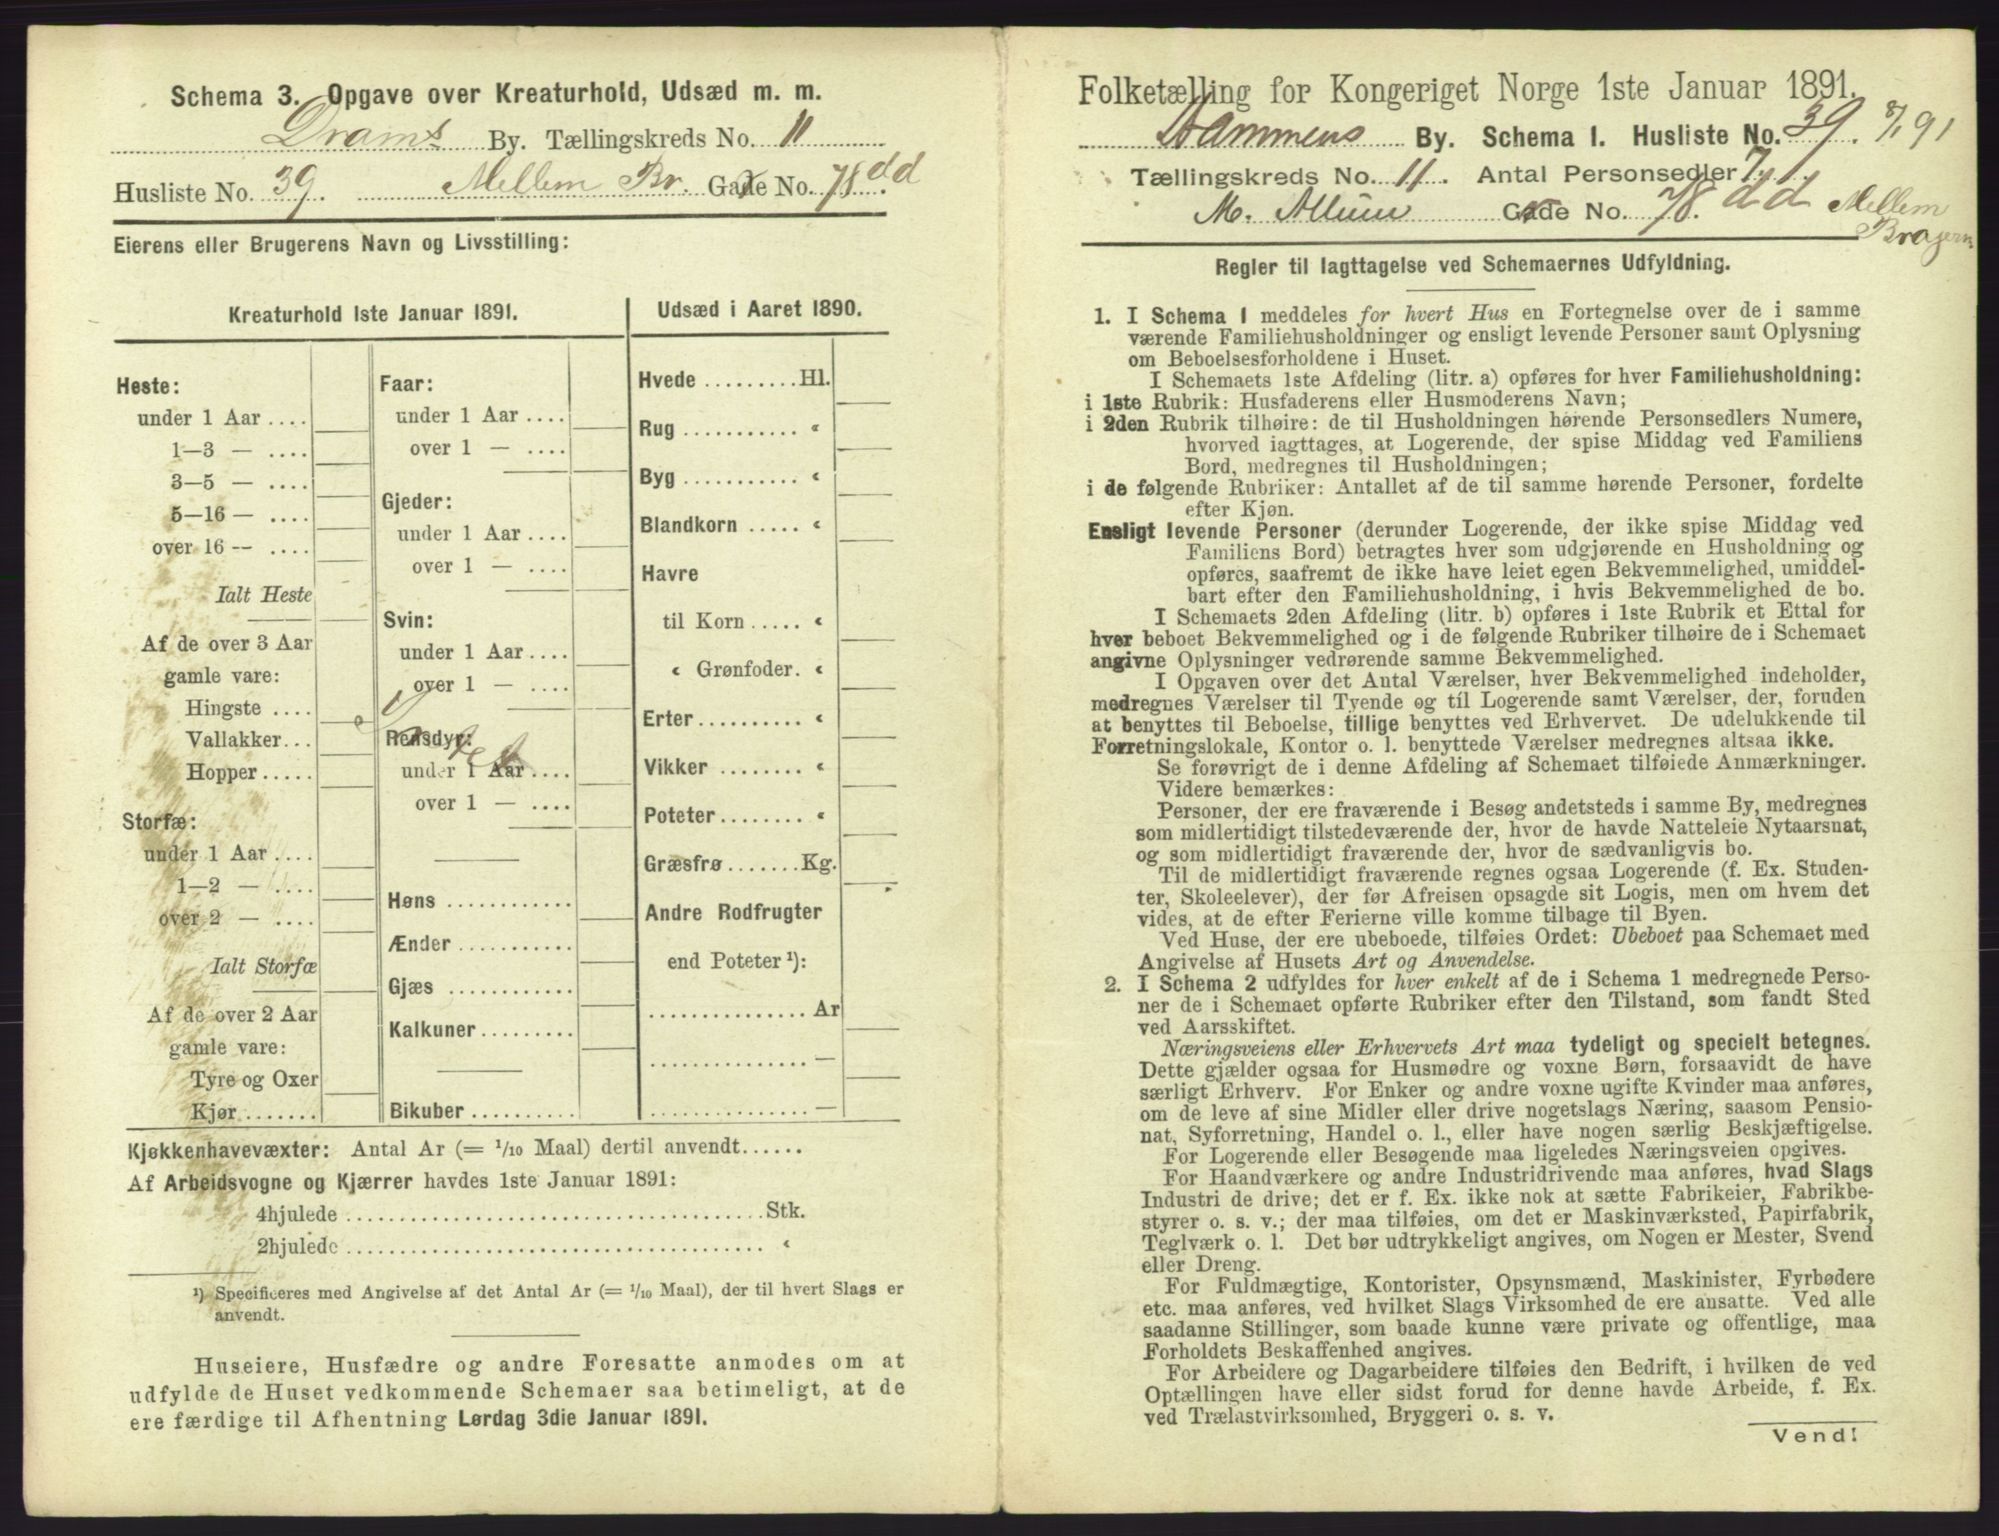 Schema 3. Opgave over Kreaturhold, Udsæd m. m.
Drams By. Tællingskreds No. 11
Husliste No. 39. Mellem Br. Gade No. 78 dd
Eierens eller Brugerens Navn og Livsstilling:
Kreaturhold 1ste Januar 1891.
Heste:
under 1 Aar ....
1—3 — ....
3—5 — ....
5—16 — ....
over 16 -- ....
Ialt Heste
Af de over 3 Aar
gamle vare:
Hingste ....
Vallakker...
Hopper .....
Storfæ:
under 1 Aar ....
1—2 — ....
over 2 — ....
Ialt Storfæ
Af de over 2 Aar
gamle vare:
Tyre og Oxer
Kjør.......
Faar:
under 1 Aar ....
over 1 — ....
Gjeder:
under 1 Aar ....
over 1 — ....
Svin:
under 1 Aar ....
over 1 — ....
Rensdyr:
under 1 Aar ....
over 1 — ....
Høns ............
Ænder ...........
Gjæs ............
Kalkuner.........
Bikuber ..........
Udsæd i Aaret 1890.
Hvede .........Hl.
Rug ........... «
Byg ........... «
Blandkorn ..... «
Havre
til Korn ..... «
« Grønfoder. «
Erter.......... «
Vikker ........ «
Poteter........ «
Græsfrø .......Kg.
Andre Rodfrugter
end Poteter ¹):
............... Ar
............... —
............... —
Kjøkkenhavevæxter: Antal Ar (= 1/10 Maal) dertil anvendt......
Af Arbeidsvogne og Kjærrer havdes 1ste Januar 1891:
4hjulede ......................................Stk.
2hjulede ...................................... «
¹) Specificeres med Angivelse af det Antal Ar (= 1/10 Maal), der til hvert Slags er
anvendt.
Huseiere, Husfædre og andre Foresatte anmodes om at
udfylde de Huset vedkommende Schemaer saa betimeligt, at de
ere færdige til Afhentning Lørdag 3die Januar 1891.
Folketælling for Kongeriget Norge 1ste Januar 1891.
Drammens By. Schema 1. Husliste No. 39. 8/1 91
Tællingskreds No. 11. Antal Personsedler 7.
M. Allum Gade No. 78. dd Mellem
Bragern
Regler til Iagttagelse ved Schemaernes Udfyldning.
1. I Schema 1 meddeles for hvert Hus en Fortegnelse over de i samme
værende Familiehusholdninger og ensligt levende Personer samt Oplysning
om Beboelsesforholdene i Huset.
I Schemaets 1ste Afdeling (litr. a) opføres for hver Familiehusholdning:
i 1ste Rubrik: Husfaderens eller Husmoderens Navn;
i 2den Rubrik tilhøire: de til Husholdningen hørende Personsedlers Numere,
hvorved iagttages, at Logerende, der spise Middag ved Familiens
Bord, medregnes til Husholdningen;
i de følgende Rubriker: Antallet af de til samme hørende Personer, fordelte
efter Kjøn.
Ensligt levende Personer (derunder Logerende, der ikke spise Middag ved
Familiens Bord) betragtes hver som udgjørende en Husholdning og
opføres, saafremt de ikke have leiet egen Bekvemmelighed, umiddel-
bart efter den Familiehusholdning, i hvis Bekvemmelighed de bo.
I Schemaets 2den Afdeling (litr. b) opføres i 1ste Rubrik et Ettal for
hver beboet Bekvemmelighed og i de følgende Rubriker tilhøire de i Schemaet
angivne Oplysninger vedrørende samme Bekvemmelighed.
I Opgaven over det Antal Værelser, hver Bekvemmelighed indeholder,
medregnes Værelser til Tyende og til Logerende samt Værelser, der, foruden
at benyttes til Beboelse, tillige benyttes ved Erhvervet. De udelukkende til
Forretningslokale, Kontor o. l. benyttede Værelser medregnes altsaa ikke.
Se forøvrigt de i denne Afdeling af Schemaet tilføiede Anmærkninger.
Videre bemærkes:
Personer, der ere fraværende i Besøg andetsteds i samme By, medregnes
som midlertidigt tilstedeværende der, hvor de havde Natteleie Nytaarsnat,
og som midlertidigt fraværende der, hvor de sædvanligvis bo.
Til de midlertidigt fraværende regnes ogsaa Logerende (f. Ex. Studen-
ter, Skoleelever), der før Afreisen opsagde sit Logis, men om hvem det
vides, at de efter Ferierne ville komme tilbage til Byen.
Ved Huse, der ere ubeboede, tilføies Ordet: Ubeboet paa Schemaet med
Angivelse af Husets Art og Anvendelse.
2. I Schema 2 udfyldes for hver enkelt af de i Schema 1 medregnede Perso-
ner de i Schemaet opførte Rubriker efter den Tilstand, som fandt Sted
ved Aarsskiftet.
Næringsveiens eller Erhvervets Art maa tydeligt og specielt betegnes.
Dette gjælder ogsaa for Husmødre og voxne Børn, forsaavidt de have
særligt Erhverv. For Enker og andre voxne ugifte Kvinder maa anføres,
om de leve af sine Midler eller drive nogetslags Næring, saasom Pensio-
nat, Syforretning, Handel o. l., eller have nogen særlig Beskjæftigelse.
For Logerende eller Besøgende maa ligeledes Næringsveien opgives.
For Haandværkere og andre Industridrivende maa anføres, hvad Slags
Industri de drive; det er f. Ex. ikke nok at sætte Fabrikeier, Fabrikbe-
styrer o. s. v.; der maa tilføies, om det er Maskinværksted, Papirfabrik,
Teglværk o. l. Det bør udtrykkeligt angives, om Nogen er Mester, Svend
eller Dreng.
For Fuldmægtige, Kontorister, Opsynsmænd, Maskinister, Fyrbødere
etc. maa anføres, ved hvilket Slags Virksomhed de ere ansatte. Ved alle
saadanne Stillinger, som baade kunne være private og offentlige, maa
Forholdets Beskaffenhed angives.
For Arbeidere og Dagarbeidere tilføies den Bedrift, i hvilken de ved
Optællingen have eller sidst forud for denne havde Arbeide, f. Ex.
ved Trælastvirksomhed, Bryggeri o. s. v.
Vend!